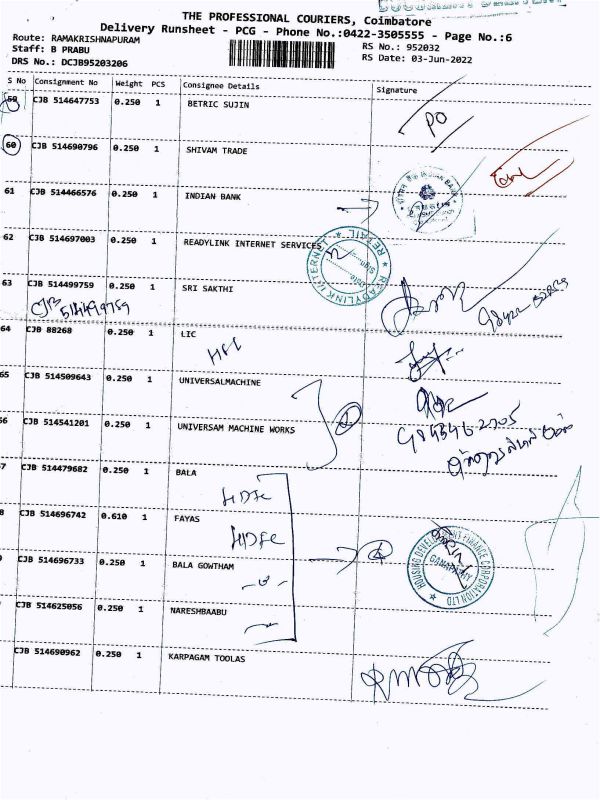 THE PROFESSIONAL COURIERS, Coimbatore
Delivery Runsheet - PCG - Phone No.:0422-3505555 - Page No.:6
Route: RAMAKRISHNAPURAM
RS No.: 952032
Staff: B PRABU
RS Date: 03-Jun-2022
DRS No.: DCJB95203206
S No Consignment No Weight PCS Consignee Details Signature
59 CJB 514647753 0.250 1 BETRIC SUJIN
PO
60 CJB 514690796 0.250 1 SHIVAM TRADE
61 CJB 514466576 0.250 1 INDIAN BANK
INDIAN BANK
62 CJB 514697003 0.250 1 READYLINK INTERNET SERVICES
READYLINK INTERNET RETAIL
Date
Sign
63 CJB 514499759 0.250 1 SRI SAKTHI
CJB 514499759
64 CJB 88268 0.250 1 LIC
65 CJB 514509643 0.250 1 UNIVERSALMACHINE
66 CJB 514541201 0.250 1 UNIVERSAM MACHINE WORKS
7 CJB 514479682 0.250 1 BALA
HDFC
8 CJB 514696742 0.610 1 FAYAS
HDFC
CJB 514696733 0.250 1 BALA GOWTHAM
HOUSING DEVELOPMENT FINANCE CORPORATION LTD
GANAPATHY
CJB 514625056 0.250 1 NARESHBAABU
CJB 514690962 0.250 1 KARPAGAM TOOLAS